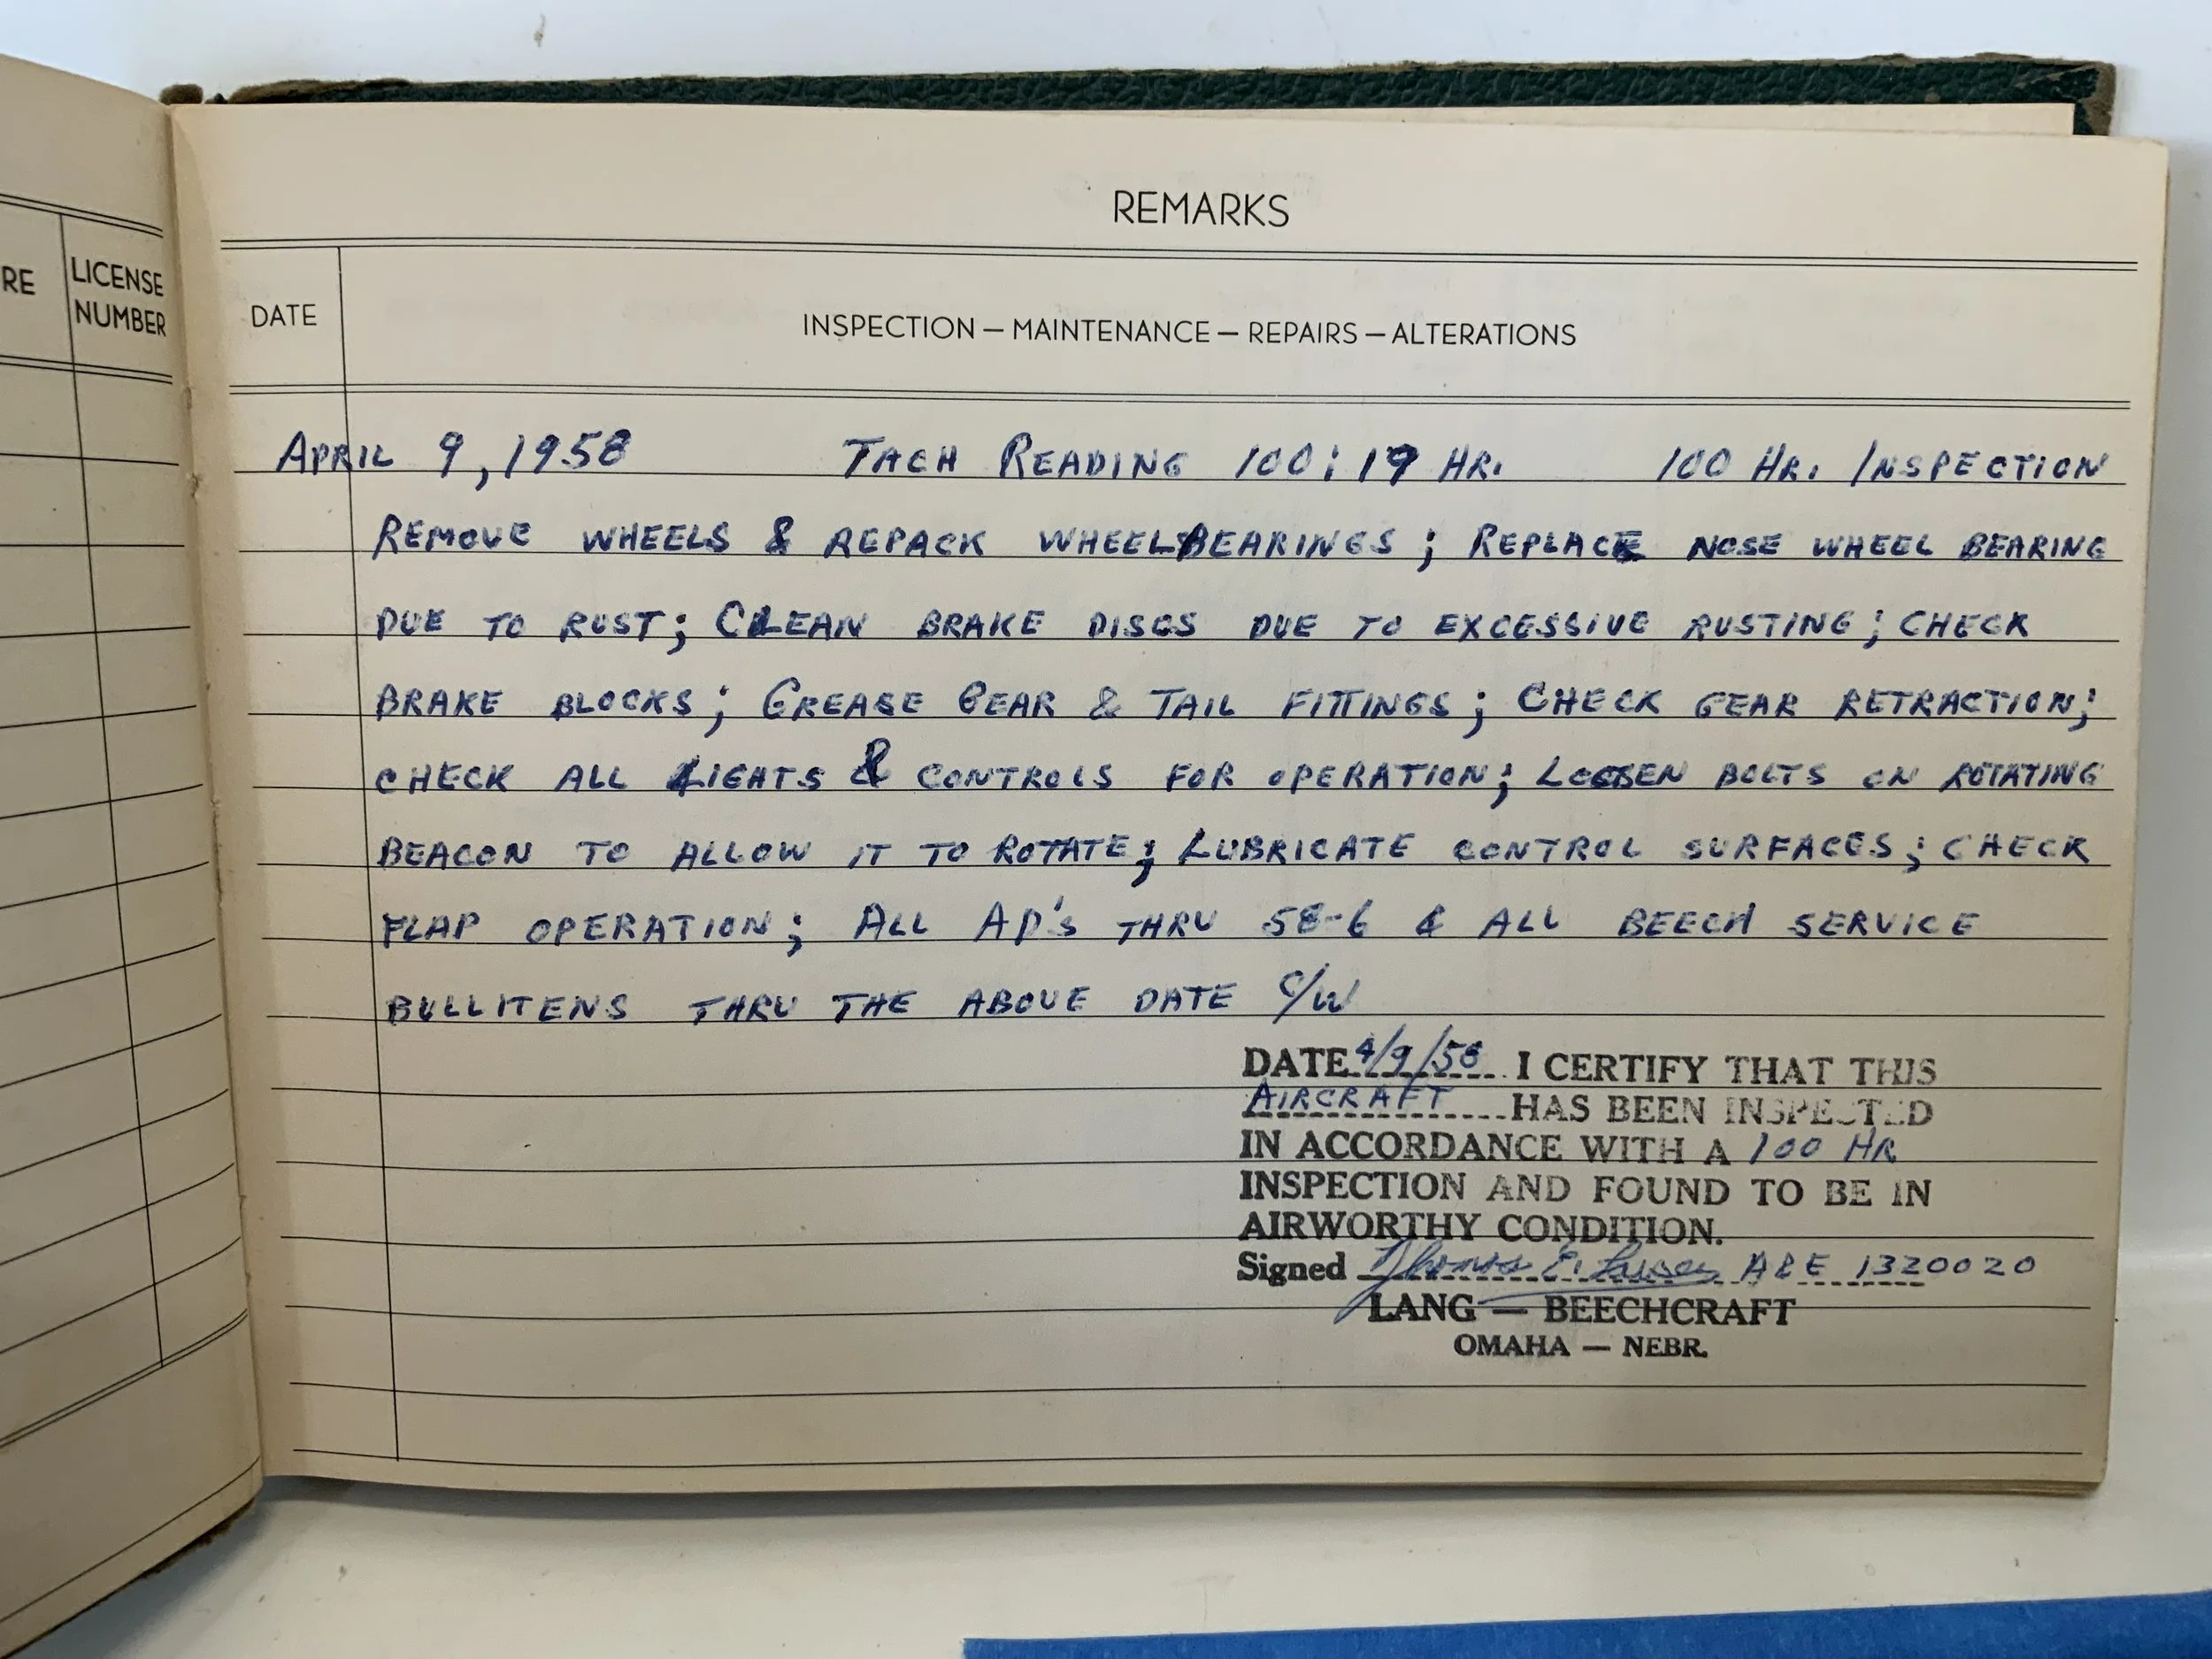 RE
LICENSE
NUMBER
REMARKS
DATE
INSPECTION — MAINTENANCE — REPAIRS — ALTERATIONS
APRIL 9, 1958 TACH READING 100:19 HR. 100 HR. INSPECTION
REMOVE WHEELS & REPACK WHEEL BEARINGS; REPLACE NOSE WHEEL BEARING
DUE TO RUST; CLEAN BRAKE DISCS DUE TO EXCESSIVE RUSTING; CHECK
BRAKE BLOCKS; GREASE GEAR & TAIL FITTINGS; CHECK GEAR RETRACTION;
CHECK ALL LIGHTS & CONTROLS FOR OPERATION; LOOSEN BOLTS ON ROTATING
BEACON TO ALLOW IT TO ROTATE; LUBRICATE CONTROL SURFACES; CHECK
FLAP OPERATION; ALL AD'S THRU 58-6 & ALL BEECH SERVICE
BULLITENS THRU THE ABOVE DATE C/W
DATE 4/9/58 I CERTIFY THAT THIS
AIRCRAFT HAS BEEN INSPECTED
IN ACCORDANCE WITH A 100 HR
INSPECTION AND FOUND TO BE IN
AIRWORTHY CONDITION.
Signed Thomas E. A&E 1320020
LANG — BEECHCRAFT
OMAHA — NEBR.